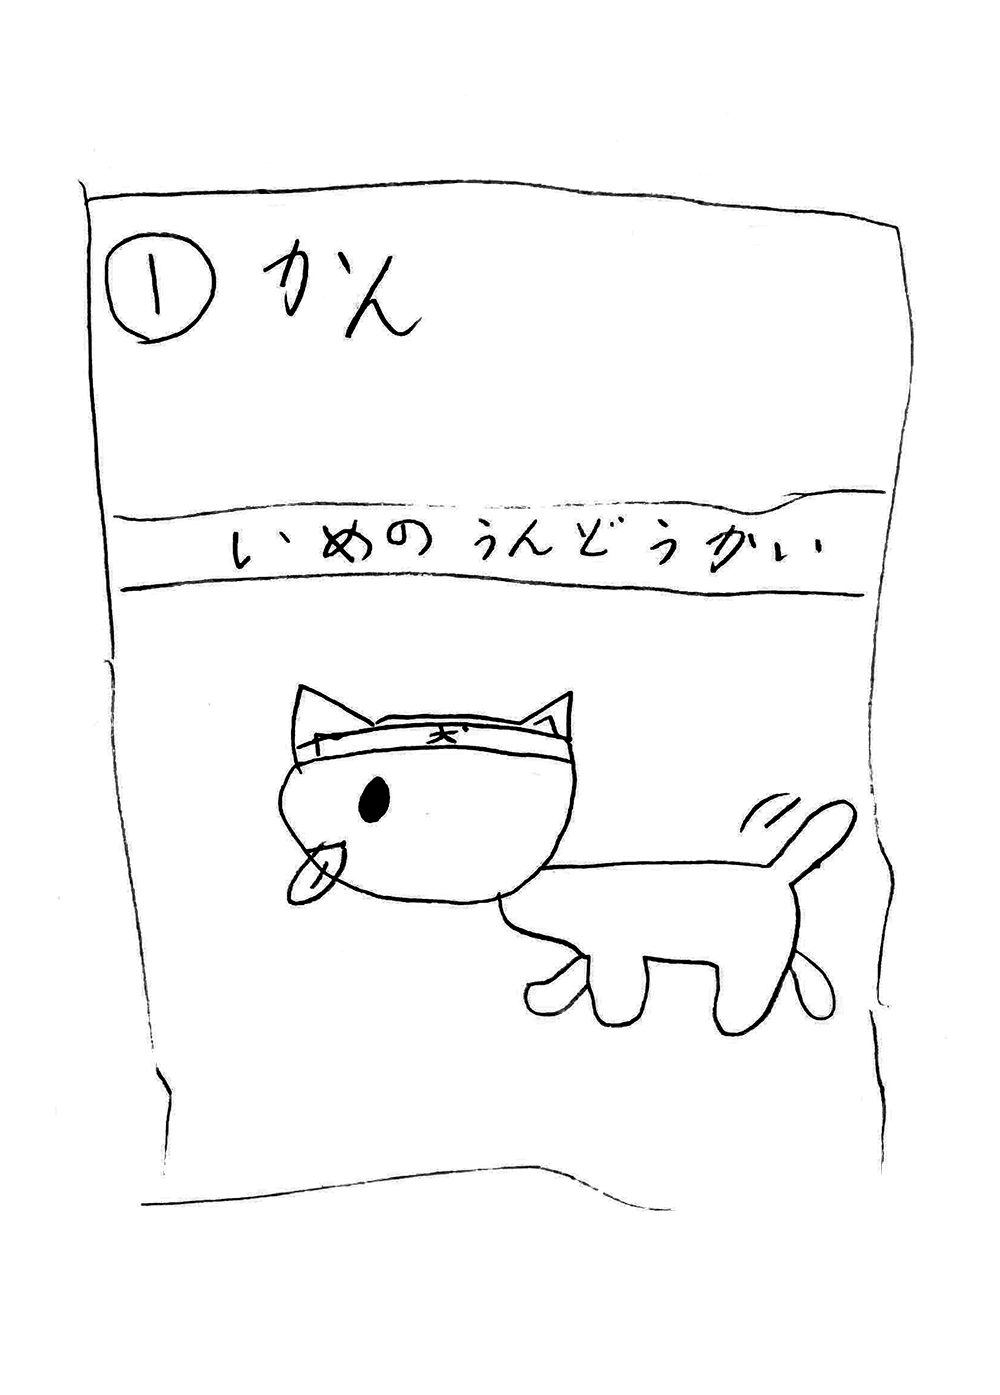 ① かん
いめの うんどうかい
犬